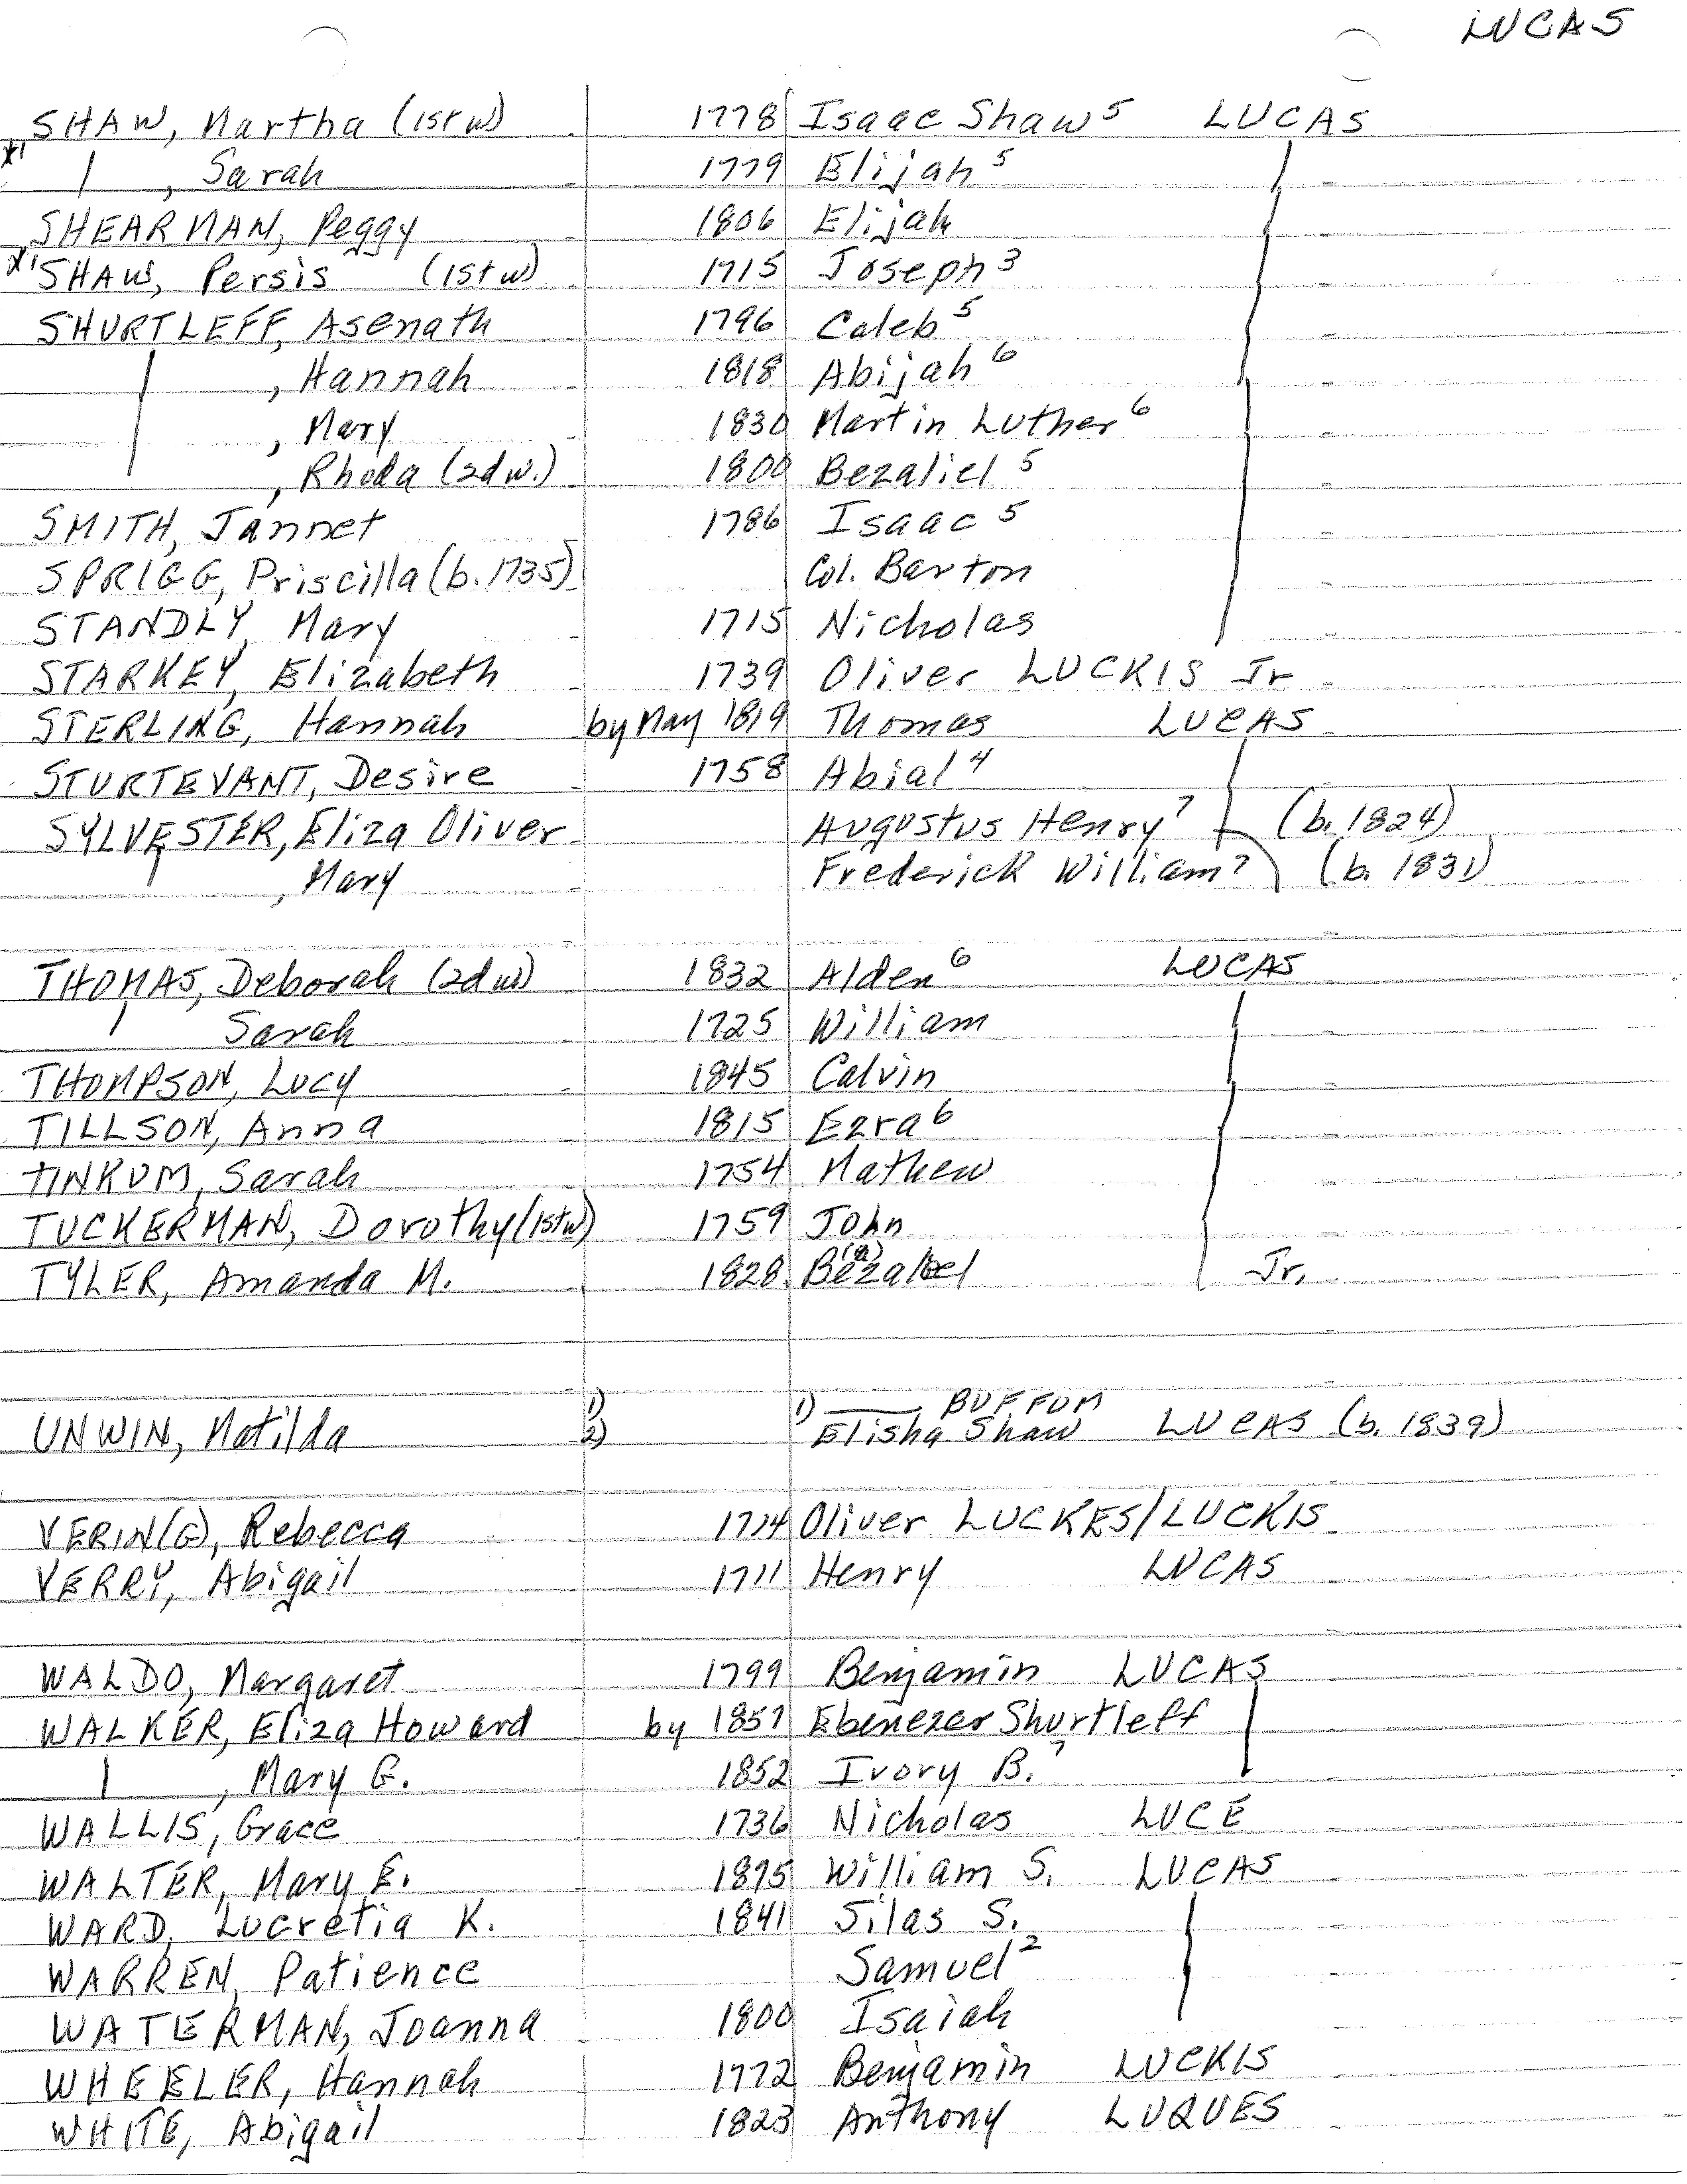 LUCAS
SHAW, Martha (1st w) 1778 Isaac Shaw⁵ LUCAS
x¹ , Sarah 1779 Elijah⁵
SHEARMAN, Peggy 1806 Elijah
x¹ SHAW, Persis (1st w) 1715 Joseph³
SHURTLEFF, Asenath 1796 Caleb⁵
, Hannah 1818 Abijah⁶
, Mary 1830 Martin Luther⁶
, Rhoda (2d w.) 1800 Bezaliel⁵
SMITH, Jannet 1786 Isaac⁵
SPRIGG, Priscilla (b. 1735) Col. Barton
STANDLY, Mary 1715 Nicholas
STARKEY, Elizabeth 1739 Oliver LUCKIS Jr
STERLING, Hannah by May 1819 Thomas LUCAS
STURTEVANT, Desire 1758 Abial⁴
SYLVESTER, Eliza Oliver Augustus Henry⁷ (b. 1824)
, Mary Frederick William⁷ (b. 1831)
THOMAS, Deborah (2d w) 1832 Alden⁶ LUCAS
Sarah 1725 William
THOMPSON, Lucy 1845 Calvin
TILLSON, Anna 1815 Ezra⁶
TINKUM, Sarah 1754 Mathew
TUCKERMAN, Dorothy (1st w) 1759 John
TYLER, Amanda M. 1828 Jr.
1) 1) —— BUFFUM
UNWIN, Matilda 2) Elisha Shaw LUCAS (b. 1839)
VERIN(G), Rebecca 1714 Oliver LUCKES/LUCKIS
VERRY, Abigail 1711 Henry LUCAS
WALDO, Margaret 1799 Benjamin LUCAS
WALKER, Eliza Howard by 1857 Ebenezer Shurtleff
, Mary G. 1852 Ivory B.⁷
WALLIS, Grace 1736 Nicholas LUCE
WALTER, Mary E. 1875 William S. LUCAS
WARD, Lucretia K. 1841 Silas S.
WARREN, Patience Samuel²
WATERMAN, Joanna 1800 Isaiah
WHEELER, Hannah 1772 Benjamin LUCKIS
WHITE, Abigail 1823 Anthony LUQUES